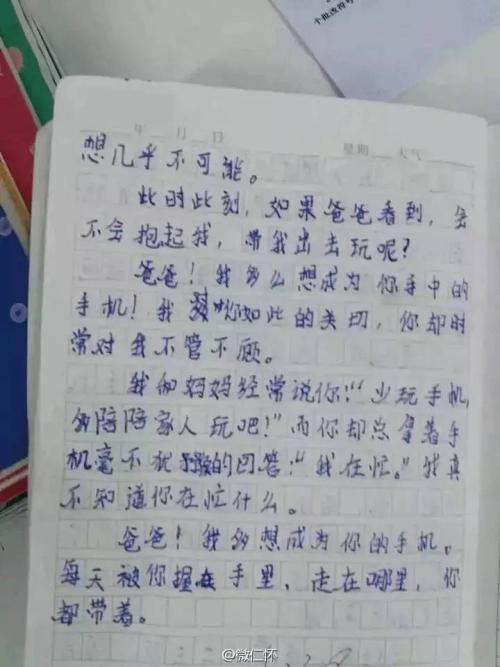 个批改符号
年 月 日 星期 天气
想几乎不可能。
此时此刻，如果爸爸看到，会
不会抱起我，带我出去玩呢？
爸爸！我多么想成为你手中的
手机！我你如此的关切，你却时
常对我不管不顾。
我和妈妈经常说你：“少玩手机，
多陪陪家人玩吧！”而你却总拿着手
机毫不犹豫的回答：“我在忙。”我真
不知道你在忙什么。
爸爸！我多想成为你的手机。
每天被你握在手里、走在哪里，你
都带着。
@微仁怀